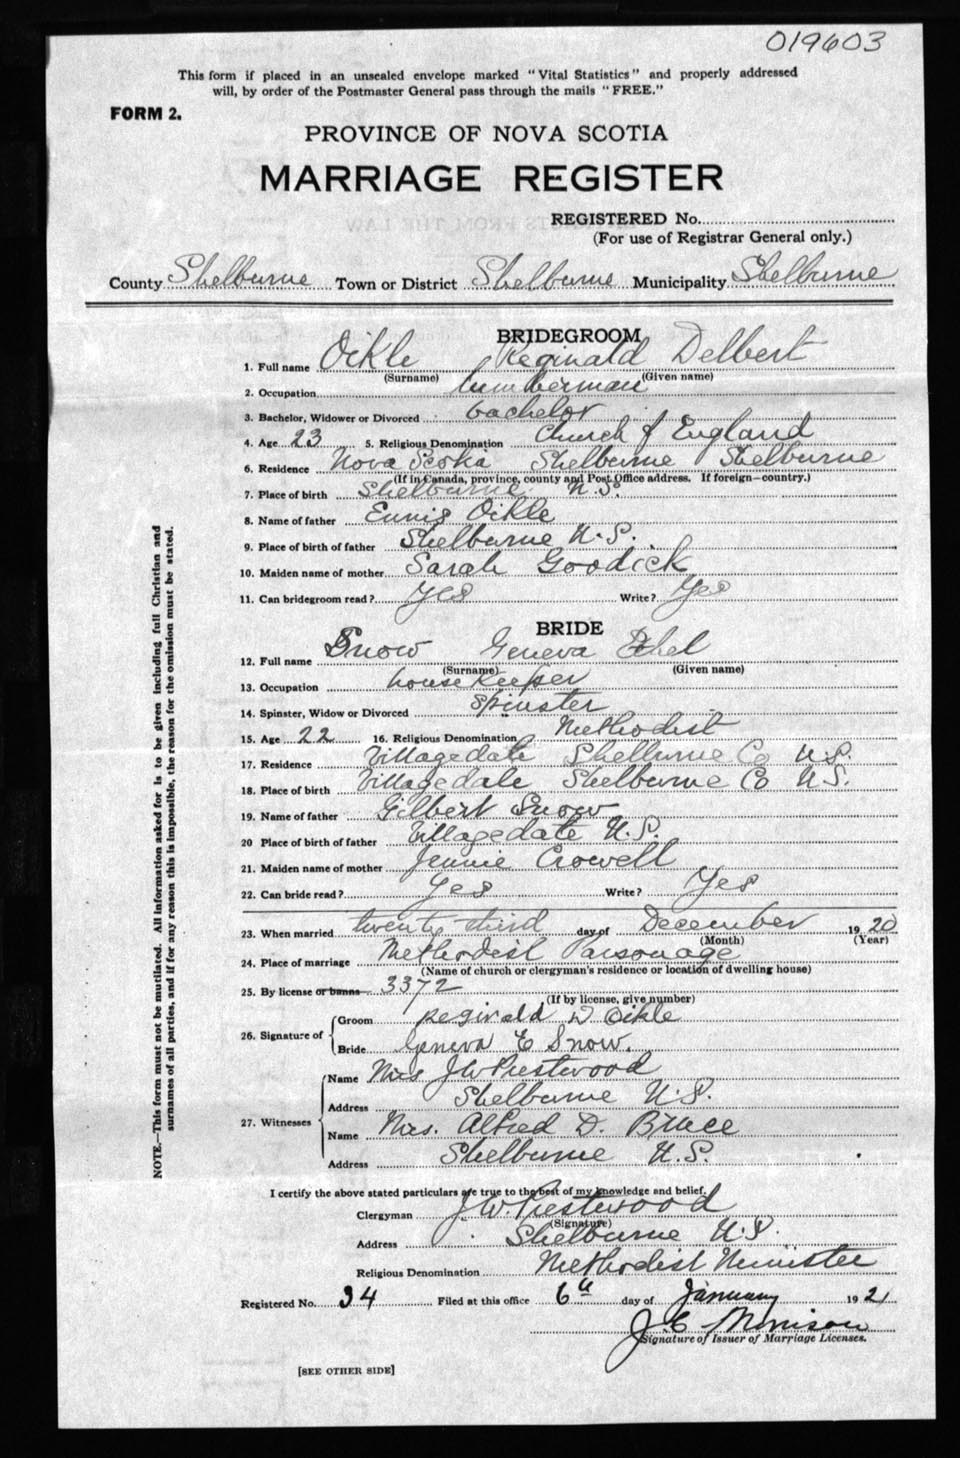 019603
This form if placed in an unsealed envelope marked "Vital Statistics" and properly addressed
will, by order of the Postmaster General pass through the mails "FREE."
FORM 2.
PROVINCE OF NOVA SCOTIA
MARRIAGE REGISTER
REGISTERED No.
(For use of Registrar General only.)
County Shelburne Town or District Shelburne Municipality Shelburne
BRIDEGROOM
1. Full name Oikle Reginald Delbert
(Surname) (Given name)
2. Occupation lumberman
3. Bachelor, Widower or Divorced bachelor
4. Age 23 5. Religious Denomination Church of England
6. Residence Nova Scotia Shelburne Shelburne
(If in Canada, province, county and Post Office address. If foreign—country.)
7. Place of birth Shelburne N.S.
8. Name of father Ennis Oikle
9. Place of birth of father Shelburne N.S.
10. Maiden name of mother Sarah Goodick
11. Can bridegroom read? Yes Write? Yes
BRIDE
12. Full name Snow Geneva Ethel
(Surname) (Given name)
13. Occupation housekeeper
14. Spinster, Widow or Divorced Spinster
15. Age 22 16. Religious Denomination Methodist
17. Residence Villagedale Shelburne Co N.S.
18. Place of birth Villagedale Shelburne Co N.S.
19. Name of father Gilbert Snow
20 Place of birth of father Villagedale N.S.
21. Maiden name of mother Jennie Crowell
22. Can bride read? Yes Write? Yes
23. When married twenty third day of December 1920
(Month) (Year)
24. Place of marriage Methodist Parsonage
(Name of church or clergyman's residence or location of dwelling house)
25. By license or banns 3372
(If by license, give number)
26. Signature of
Groom Reginald D Oikle
Bride Geneva E Snow.
27. Witnesses
Name Mrs J W Prestwood
Address Shelburne N.S.
Name Mrs. Alfred D. Bruce
Address Shelburne N.S.
I certify the above stated particulars are true to the best of my knowledge and belief.
Clergyman J. W. Prestwood
(Signature)
Address Shelburne N.S.
Religious Denomination Methodist Minister
Registered No. 34 Filed at this office 6th day of January 1921
J. C. Morrison
Signature of Issuer of Marriage Licenses.
[SEE OTHER SIDE]
NOTE.—This form must not be mutilated. All information asked for is to be given including full Christian and
surnames of all parties, and if for any reason this is impossible, the reason for the omission must be stated.